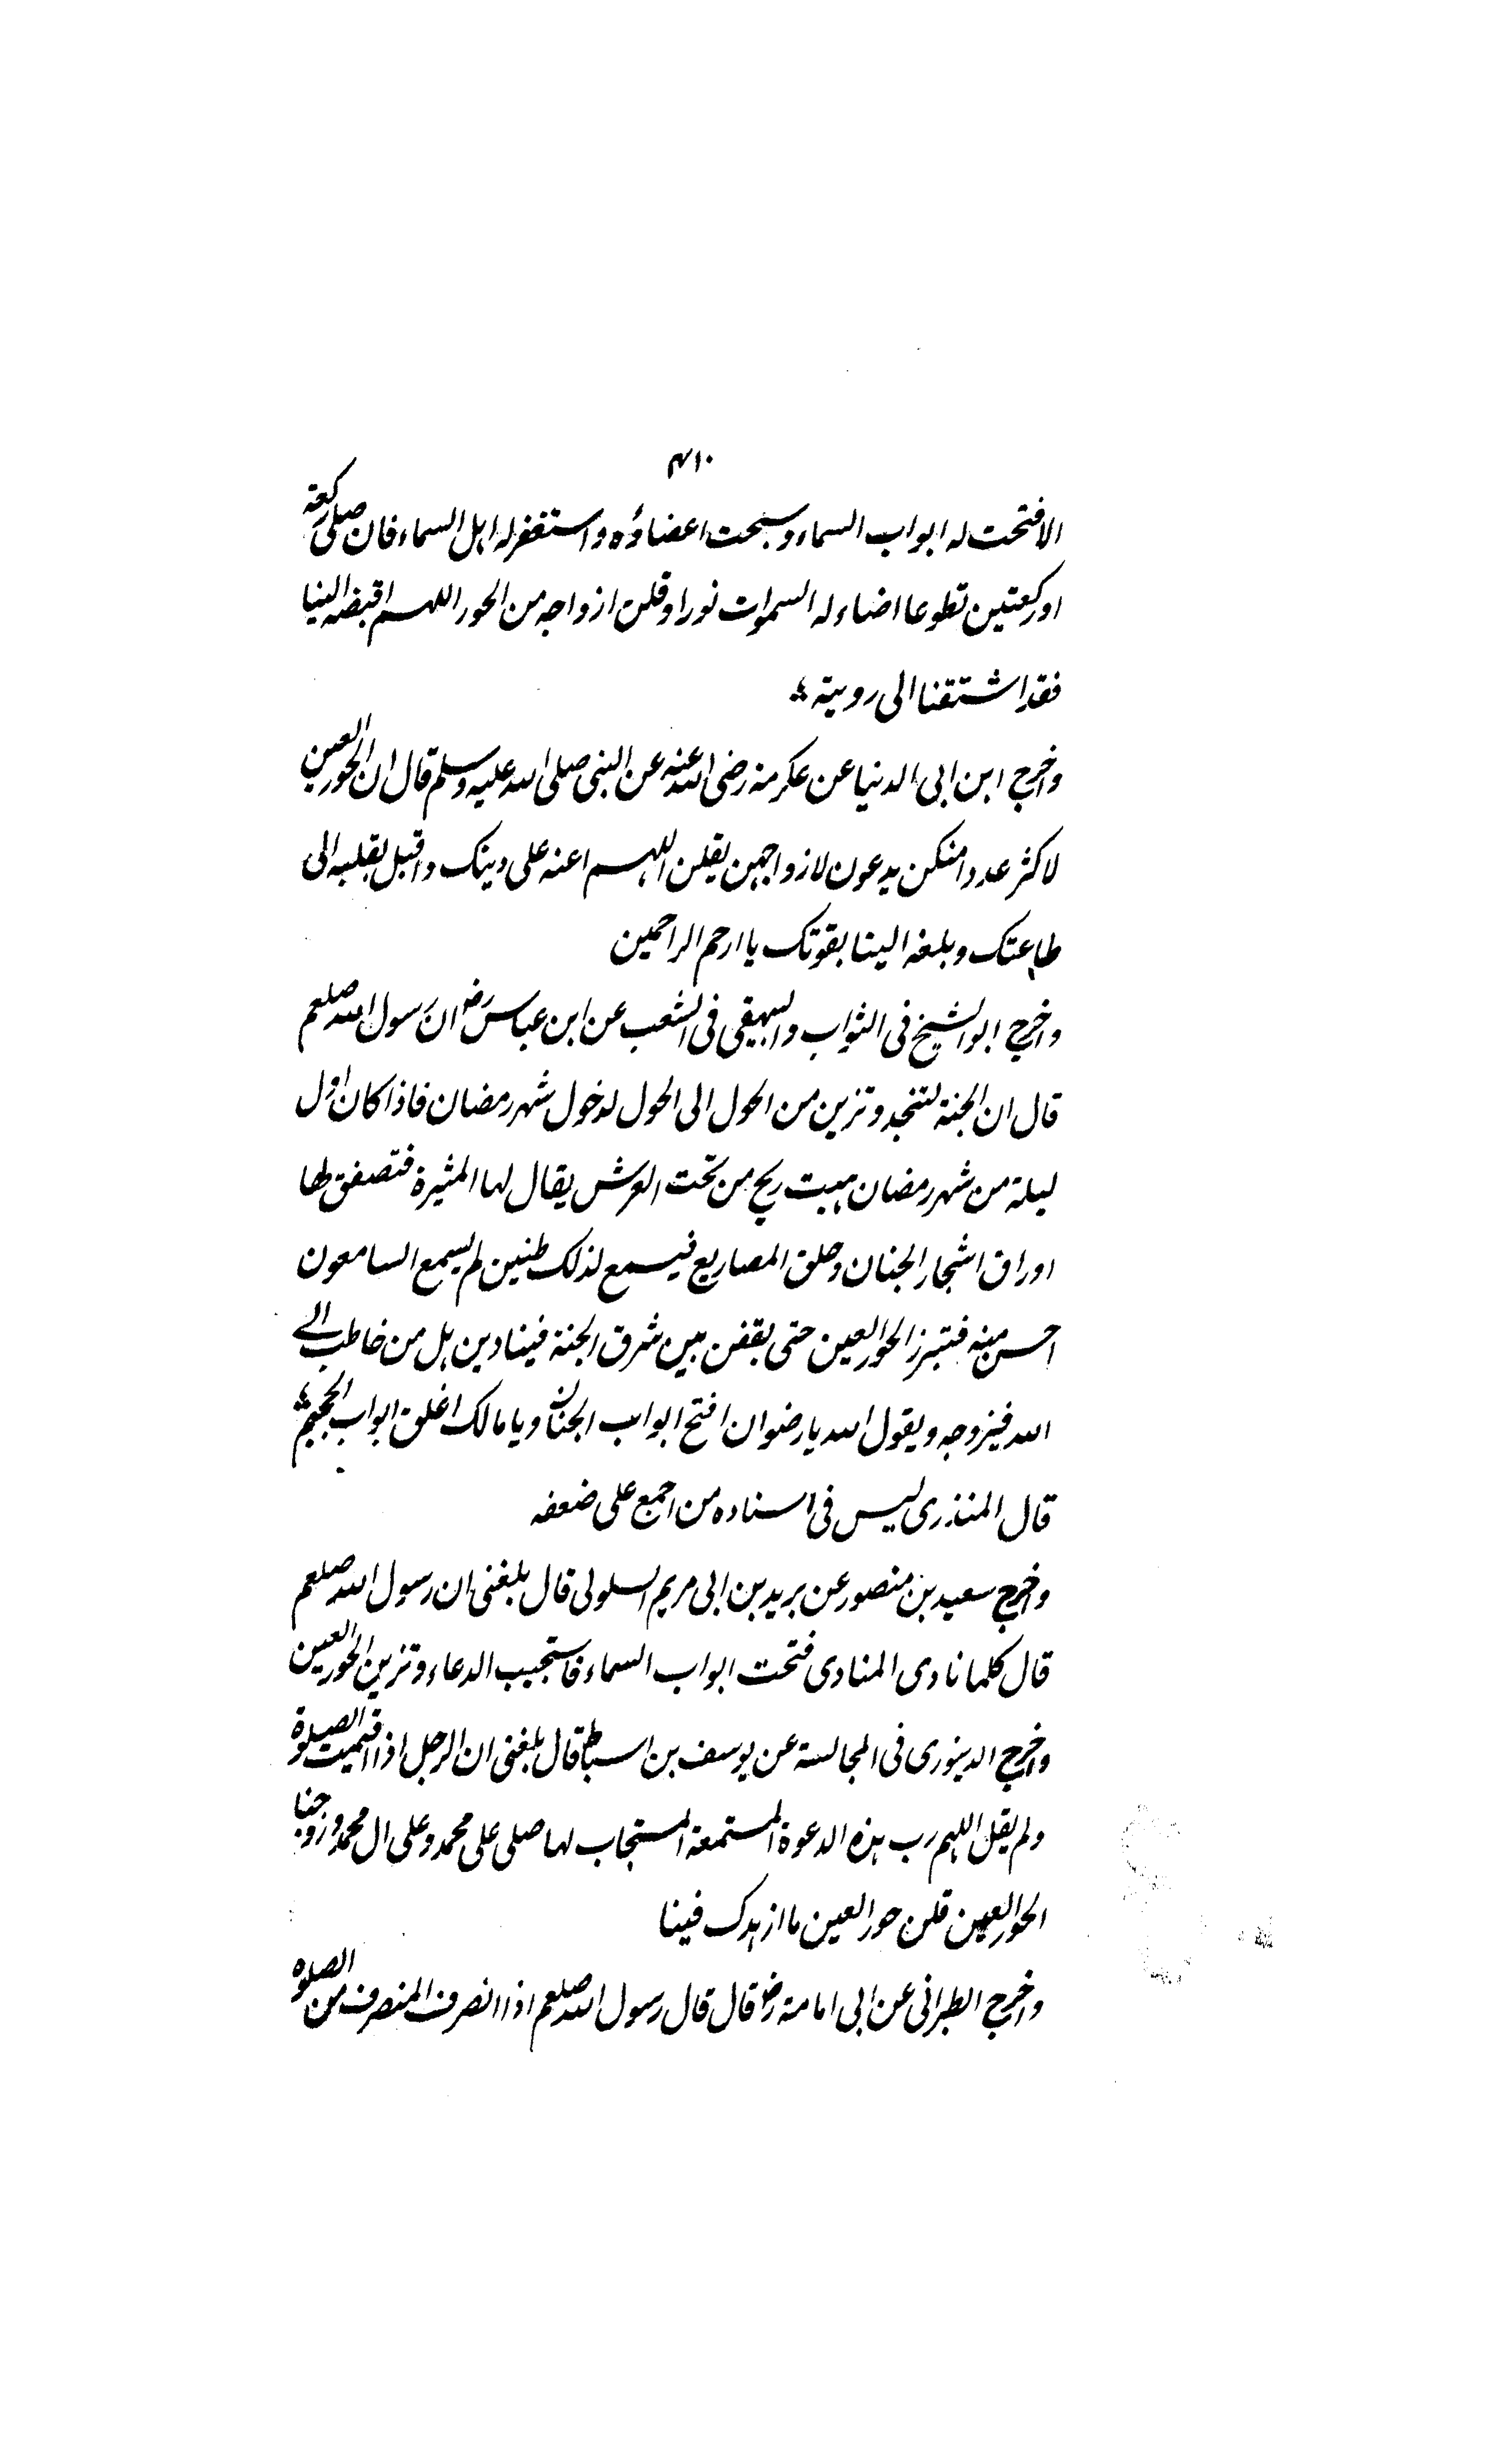 ۴۱۰
الا فتحت له ابواب السماء وسبحت اعضاؤه واستغفر له اهل السماء فان صلى ركعة
او ركعتين تطوعا اضاء له السموات نورا وقلن ازواجه من الحور اللهم اقبضه الينا
فقد اشتقنا الى رويته
واخرج ابن ابى الدنيا عن عكرمة رضى الله عنه عن النبى صلى الله عليه وسلم قال ان الحور العين
لاكثر عددا منكن يدعون لازواجهن يقلن اللهم اعنه على دينك واقبل بقلبه الى
طاعتك وبلغه الينا بقوتك يا ارحم الراحمين
واخرج ابو الشيخ فى الثواب والبيهقى فى الشعب عن ابن عباس رض ان رسول الله صلعم
قال ان الجنة لتنجد وتزين من الحول الى الحول لدخول شهر رمضان فاذا كان اول
ليلة من شهر رمضان هبت ريح من تحت العرش يقال لها المثيرة فتصفق لها
اوراق اشجار الجنان وحلق المصاريع فيسمع لذلك طنين لم يسمع السامعون
احسن منه فتبرز الحور العين حتى يقفن بين شرق الجنة فينادين هل من خاطب الے
الله فيزوجه ويقول الله يا رضوان افتح ابواب الجنان ويا مالك اغلق ابواب الجحيم
قال المنذرى ليس فى اسناده من اجمع على ضعفه
واخرج سعيد بن منصور عن بريد بن ابى مريم السلولى قال بلغنى ان رسول الله صلعم
قال كلما نادى المنادى فتحت ابواب السماء فاستجيب الدعاء وتزين الحور العين
واخرج الدينورى فى المجالسة عن يوسف بن اسباط قال بلغنى ان الرجل اذا اقيمت الصلوة
ولم يقل اللهم رب هذه الدعوة المستمعة المستجاب لها صلى على محمد وعلى ال محمد وزوجنا
الحور العين قلن حور العين ما ازهدك فينا
واخرج الطبرانى عن ابى امامة رض قال قال رسول الله صلعم اذا انصرف المنصرف من الصلوه